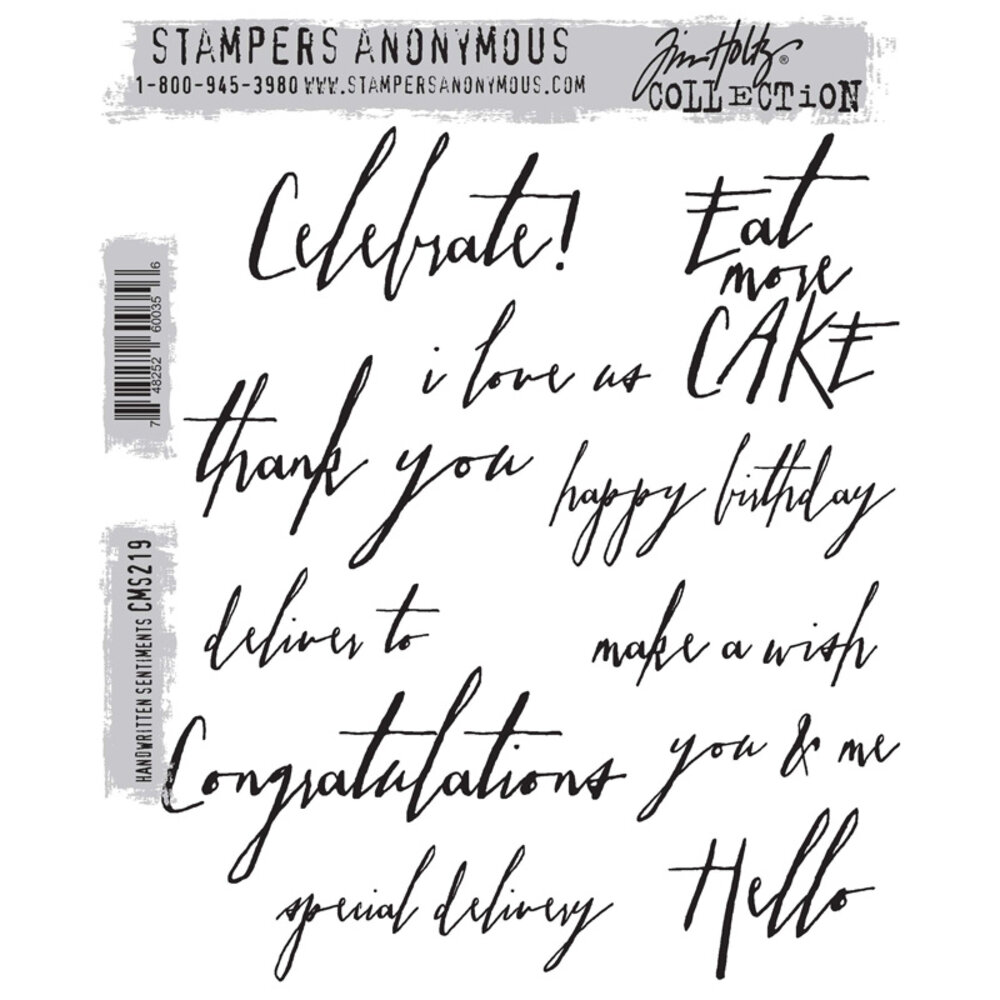 STAMPERS ANONYMOUS
1-800-945-3980 WWW.STAMPERSANONYMOUS.COM
Tim Holtz®
COLLECTION
Celebrate!
Eat
more
CAKE
i love us
thank you
happy birthday
deliver to
make a wish
Congratulations
you & me
special delivery
Hello
7 48252 60035 6
HANDWRITTEN SENTIMENTS CMS219